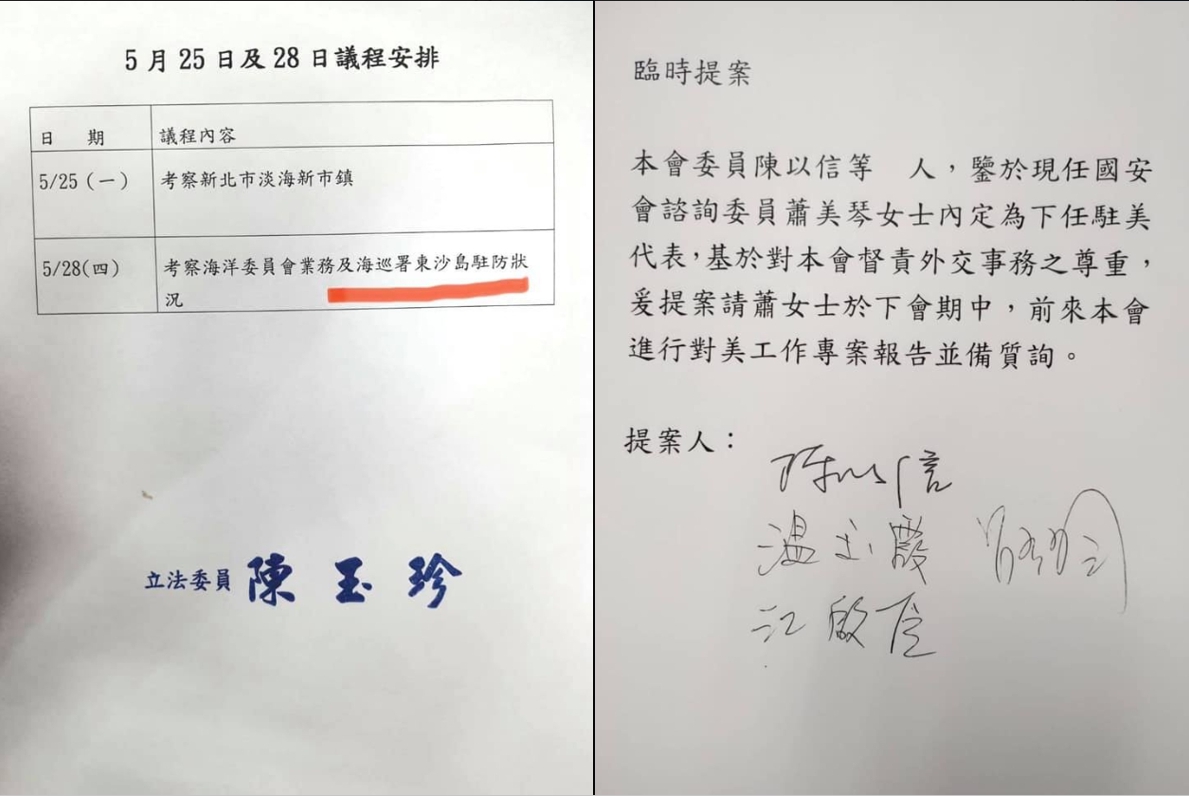 5 月 25 日及 28 日議程安排
日 期 議程內容
5/25 (一) 考察新北市淡海新市鎮
5/28(四) 考察海洋委員會業務及海巡署東沙島駐防狀
況
立法委員 陳 玉 珍
臨時提案
本會委員陳以信等 人，鑒於現任國安
會諮詢委員蕭美琴女士內定為下任駐美
代表，基於對本會督責外交事務之尊重，
爰提案請蕭女士於下會期中，前來本會
進行對美工作專案報告並備質詢。
提案人：
陳以信
溫玉霞
江啟臣